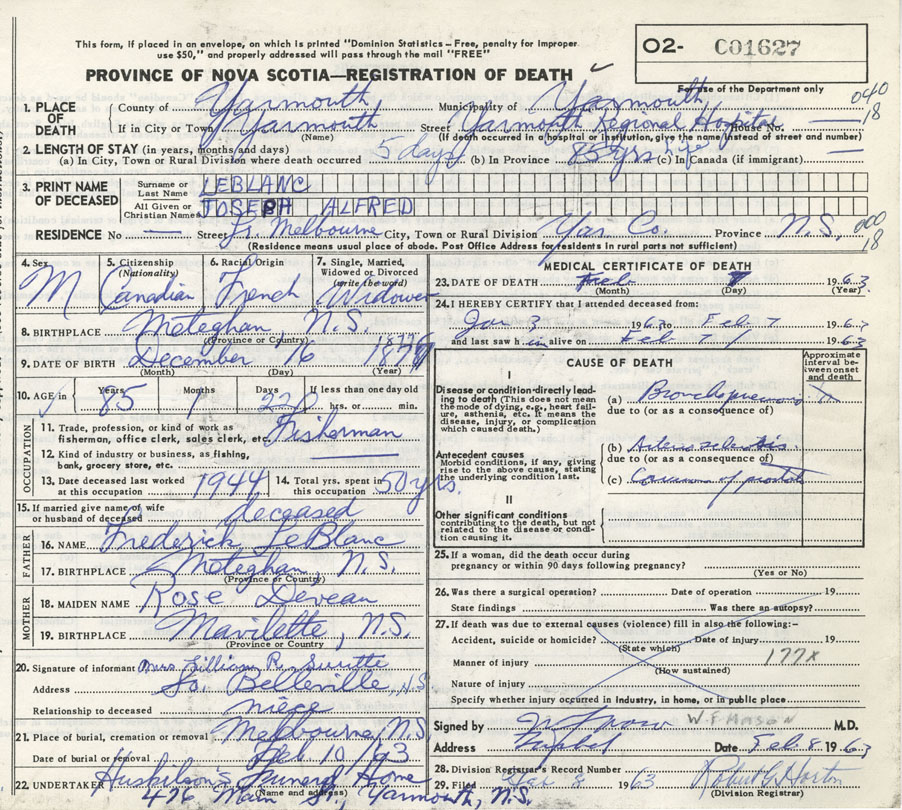 This form, if placed in an envelope, on which is printed "Dominion Statistics – Free, penalty for improper
use $50," and properly addressed will pass through the mail "FREE"
O2- C01627
PROVINCE OF NOVA SCOTIA—REGISTRATION OF DEATH
For use of the Department only
040
18
1. PLACE OF DEATH
County of Yarmouth Municipality of Yarmouth
If in City or Town Yarmouth Street Yarmouth Regional Hospital House No.
(Name) (If death occurred in a hospital or institution, give the name instead of street and number)
2. LENGTH OF STAY (in years, months and days)
(a) In City, Town or Rural Division where death occurred 5 days (b) In Province 85 yrs (c) In Canada (if immigrant)
3. PRINT NAME OF DECEASED
Surname or Last Name LEBLANC
All Given or Christian Names JOSEPH ALFRED
RESIDENCE No — Street Melbourne City, Town or Rural Division Yar Co. Province N.S.
000
18
(Residence means usual place of abode. Post Office Address for residents in rural parts not sufficient)
4. Sex M
5. Citizenship (Nationality) Canadian
6. Racial Origin French
7. Single, Married, Widowed or Divorced (write the word) Widower
8. BIRTHPLACE Meteghan, N.S.
(Province or Country)
9. DATE OF BIRTH December 16 1877
(Month) (Day) (Year)
10. AGE in Years 85 Months 1 Days 22 If less than one day old
hrs. or min.
OCCUPATION
11. Trade, profession, or kind of work as
fisherman, office clerk, sales clerk, etc. Fisherman
12. Kind of industry or business, as fishing,
bank, grocery store, etc.
13. Date deceased last worked
at this occupation 1944
14. Total yrs. spent in
this occupation 50 yrs.
15. If married give name of wife
or husband of deceased deceased
FATHER
16. NAME Frederick LeBlanc
17. BIRTHPLACE Meteghan, N.S.
(Province or Country)
MOTHER
18. MAIDEN NAME Rose Deveau
19. BIRTHPLACE Mavilette, N.S.
(Province or Country)
20. Signature of informant Mrs. Lillian R. Surette
Address So. Belleville, N.S
Relationship to deceased niece
21. Place of burial, cremation or removal Melbourne, N.S.
Date of burial or removal Feb 10/63
22. UNDERTAKER Huskilson's Funeral Home
(Name and address)
476 Main St., Yarmouth, N.S.
MEDICAL CERTIFICATE OF DEATH
23. DATE OF DEATH Feb 7 1963
(Month) (Day) (Year)
24. I HEREBY CERTIFY that I attended deceased from:
Jan 3 1963 to Feb 7 1963
and last saw h im alive on Feb 7 1963
CAUSE OF DEATH
Approximate interval between onset and death
I
Disease or condition directly leading to death (This does not mean
the mode of dying, e.g., heart failure, asthenia, etc. It means the
disease, injury, or complication
which caused death.)
(a) Bronchopneumonia
due to (or as a consequence of)
Antecedent causes
Morbid conditions, if any, giving
rise to the above cause, stating
the underlying condition last.
(b) Arteriosclerosis
due to (or as a consequence of)
(c) Carcinoma of prostate
II
Other significant conditions
contributing to the death, but not
related to the disease or condition causing it.
25. If a woman, did the death occur during
pregnancy or within 90 days following pregnancy?
(Yes or No)
26. Was there a surgical operation? Date of operation 19
State findings Was there an autopsy?
27. If death was due to external causes (violence) fill in also the following:-
Accident, suicide or homicide? Date of injury 19
(State which)
Manner of injury 177x
(How sustained)
Nature of injury
Specify whether injury occurred in industry, in home, or in public place
Signed by W.F. MASON M.D.
Address Date Feb. 8 1963
28. Division Registrar's Record Number
29. Filed 8 1963 Robert G. Horton
(Division Registrar)